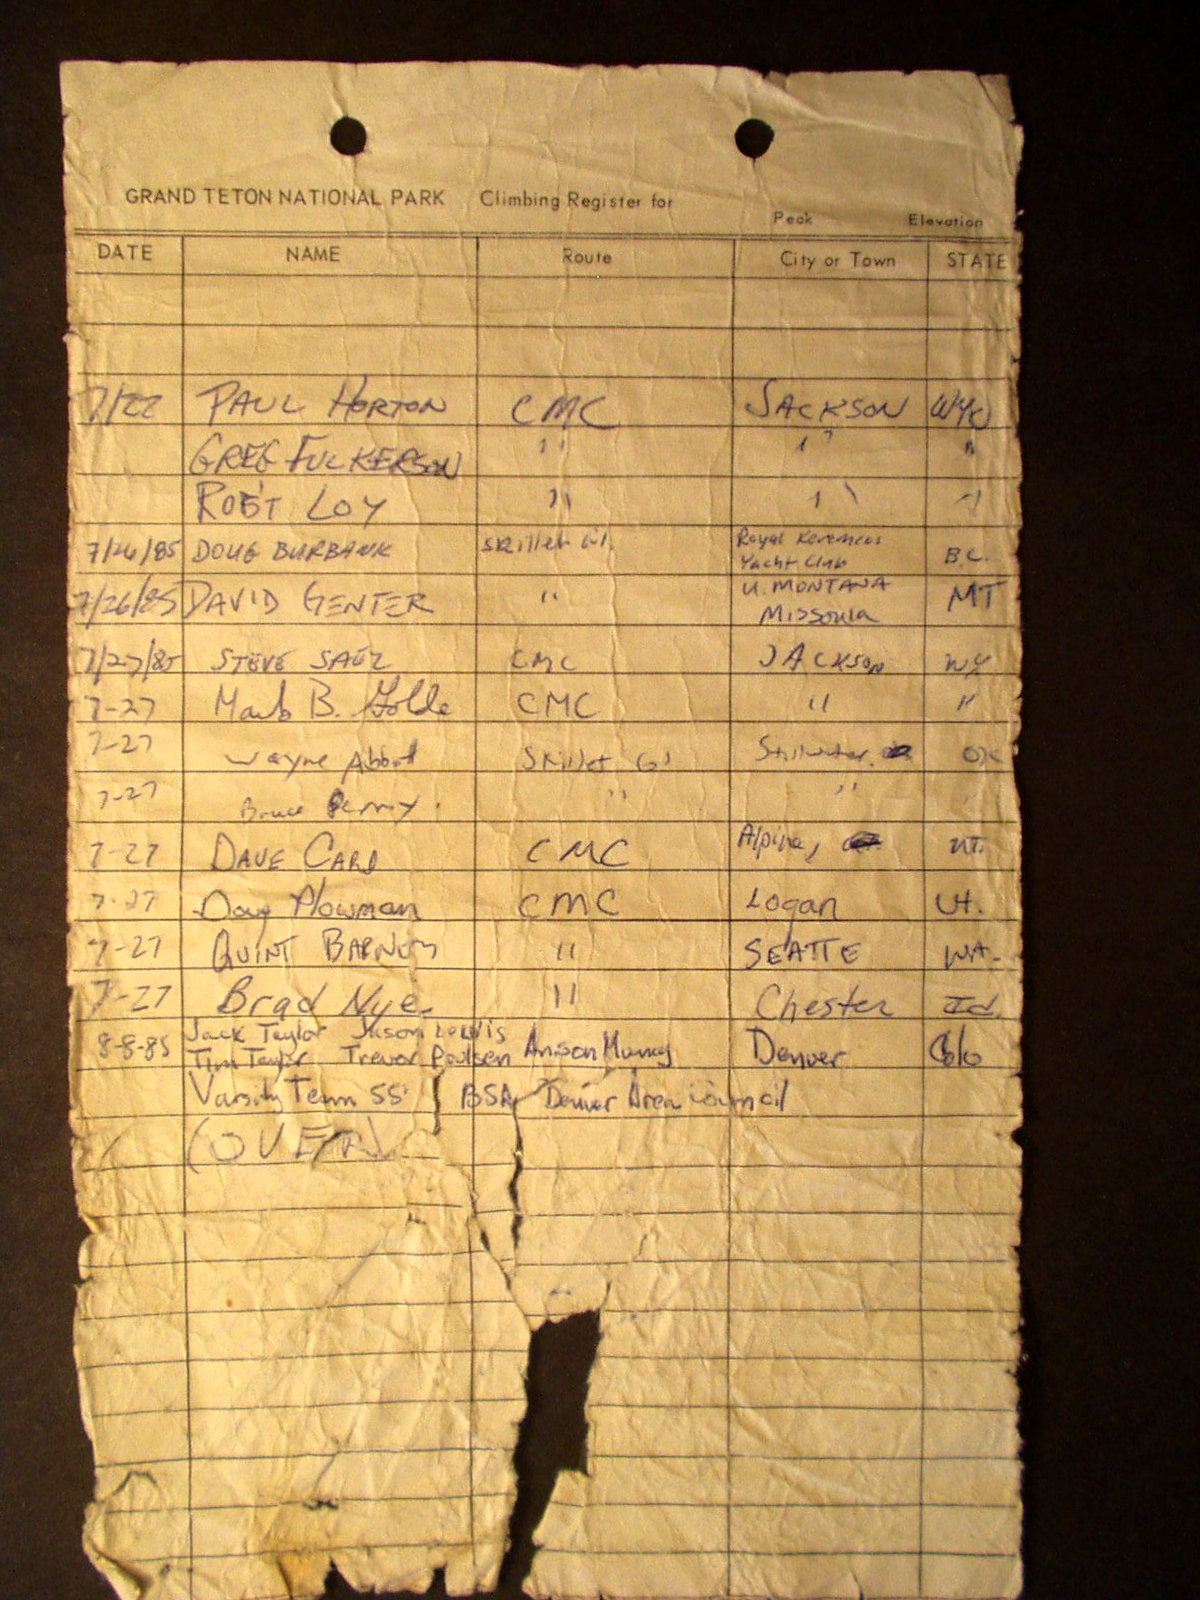 GRAND TETON NATIONAL PARK Climbing Register for
Peak Elevation
DATE NAME Route City or Town STATE
7/22 PAUL HORTON CMC JACKSON WYO
GREG FULKERSON " " "
ROB'T LOY " " "
7/26/85 DOUG BURBANK Skillet Gl. Royal
Yacht Club B.C.
7/26/85 DAVID GENTER " U. MONTANA
Missoula MT
7/27/85 STEVE SAEZ CMC JACKSON WY
7-27 Mark B. CMC " "
7-27 Wayne Abbot Skillet Gl Stillwater OK
7-27 Bruce " "
7-27 DAVE CARD CMC Alpine, UT.
7-27 Doug Plowman CMC Logan Ut.
7-27 QUINT BARNEY " SEATTE WA.
7-27 Brad Nye. " Chester Id.
8-8-85 Jack Taylor Jason Lewis
Tim Taylor Trevor Poulsen Anson Denver Colo
Varsity Team 55 BSA Denver Area Council
(OVER)